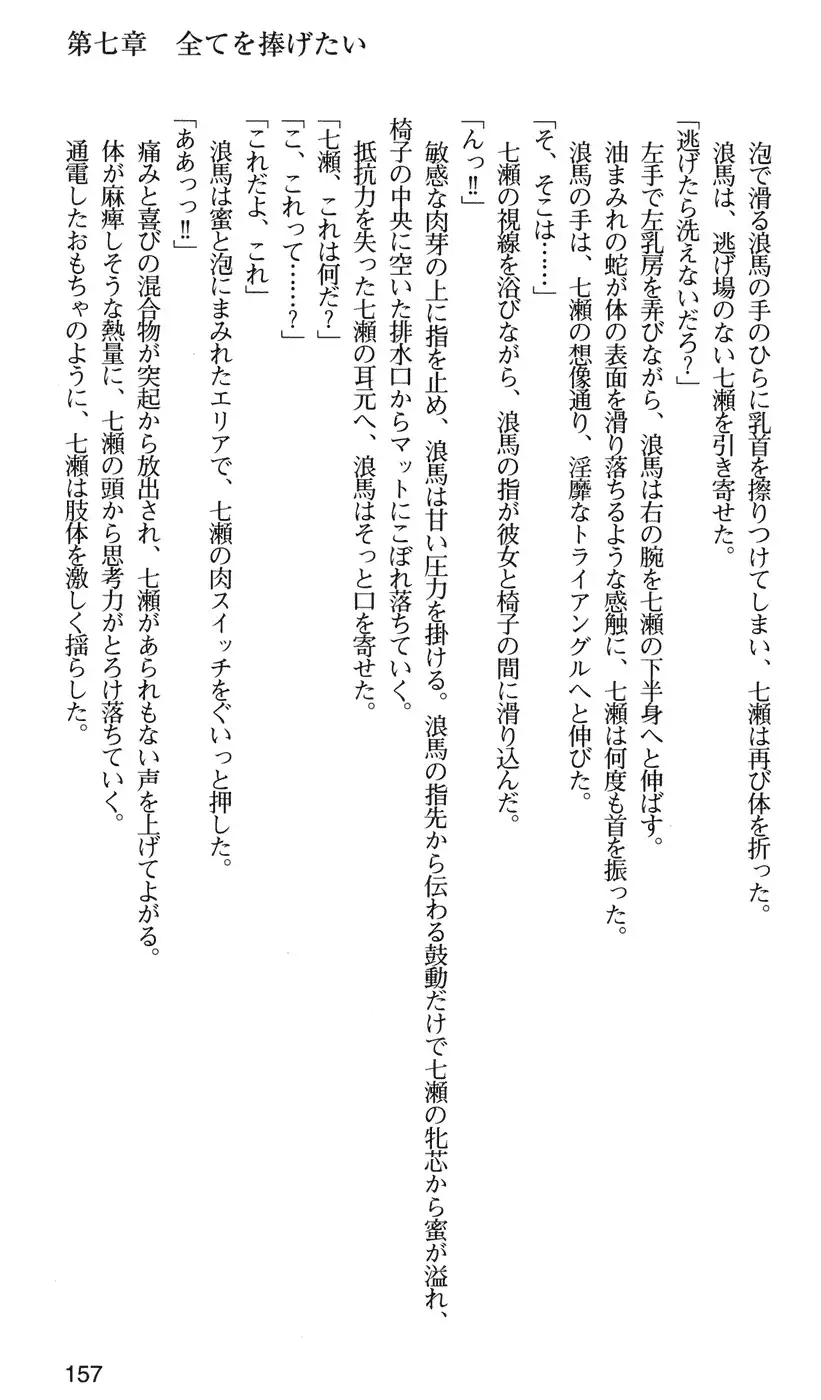 第七章　全てを捧げたい
泡で滑る浪馬の手のひらに乳首を擦りつけてしまい、七瀬は再び体を折った。
浪馬は、逃げ場のない七瀬を引き寄せた。
「逃げたら洗えないだろ？」
左手で左乳房を弄びながら、浪馬は右の腕を七瀬の下半身へと伸ばす。
油まみれの蛇が体の表面を滑り落ちるような感触に、七瀬は何度も首を振った。
浪馬の手は、七瀬の想像通り、淫靡なトライアングルへと伸びた。
「そ、そこは……」
七瀬の視線を浴びながら、浪馬の指が彼女と椅子の間に滑り込んだ。
「んっ‼」
敏感な肉芽の上に指を止め、浪馬は甘い圧力を掛ける。浪馬の指先から伝わる鼓動だけで七瀬の牝芯から蜜が溢れ、
椅子の中央に空いた排水口からマットにこぼれ落ちていく。
抵抗力を失った七瀬の耳元へ、浪馬はそっと口を寄せた。
「七瀬、これは何だ？」
「こ、これって……？」
「これだよ、これ」
浪馬は蜜と泡にまみれたエリアで、七瀬の肉スイッチをぐいっと押した。
「ああっっ‼」
痛みと喜びの混合物が突起から放出され、七瀬があられもない声を上げてよがる。
体が麻痺しそうな熱量に、七瀬の頭から思考力がとろけ落ちていく。
通電したおもちゃのように、七瀬は肢体を激しく揺らした。
157